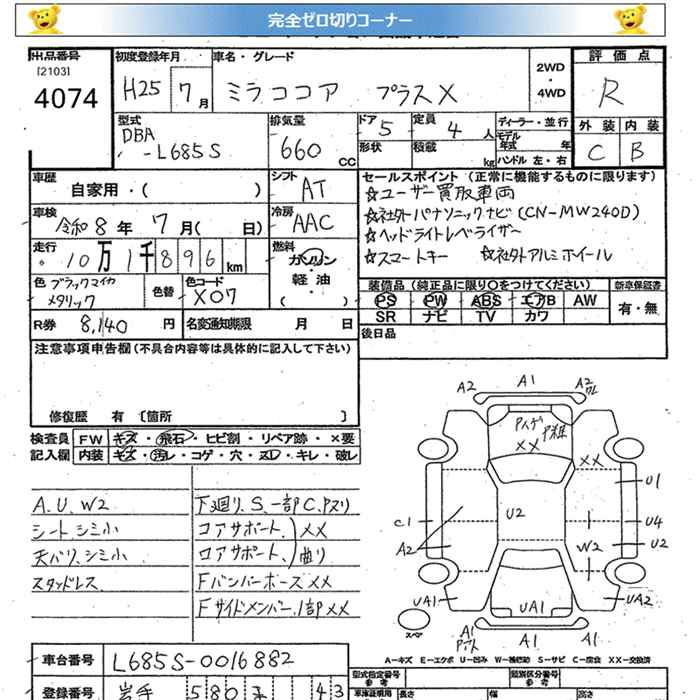 完全ゼロ切りコーナー
出品番号
[2103]
4074
初度登録年月
H25 7月
車名・グレード
ミラココア プラスX
2WD
・
4WD
評価点
R
外装 内装
C B
型式
DBA
-L685S
排気量
660 CC
ドア 5
定員 4 人
形状
積載 kg
ディーラー・並行
モデル年式 年
ハンドル 左・右
車歴
自家用・( )
シフト AT
車検
令和8年7月( 日)
冷房 AAC
走行
10万1千896km
燃料
ガソリン
軽油
・( )
色 ブラックマイカメタリック
色替
色コード X07
R券 8,140 円
名変通知期限 月 日
セールスポイント(正常に機能するものに限ります)
☆ユーザー買取車両
☆社外パナソニックナビ(CN-MW240D)
☆ヘッドライトレベライザー
☆スマートキー ☆社外アルミホイール
装備品(純正品に限り○をつけてください)
新車保証書
PS PW ABS エアB AW
SR ナビ TV カワ
有・無
後日品
注意事項申告欄(不具合内容等は具体的に記入して下さい)
修復歴 有 [箇所 ]
検査員
記入欄
FW キズ・飛石・ヒビ割・リペア跡・×要
内装 キズ・汚レ・コゲ・穴・スレ・キレ・破レ
A.U.W2
シート、シミ小
天バリ、シミ小
スタッドレス
下廻り、S、一部C、アスリ
コアサポート、××
ロアサポート、曲り
Fバンパーホース××
Fサイドメンバー、1部××
A2 A1 A2
××
××
U1
U2
C1
U4
A2
W2
U2
UA1
UA1
UA2
スペア
A1
A1
A1
A-キズ E-エクボ U-凹み W-補修跡 S-サビ C-腐食 XX-交換済
車台番号
L685S-0016882
登録番号
岩手 580 43
型式指定番号
参考
類別区分番号
参考
長さ
幅
高さ